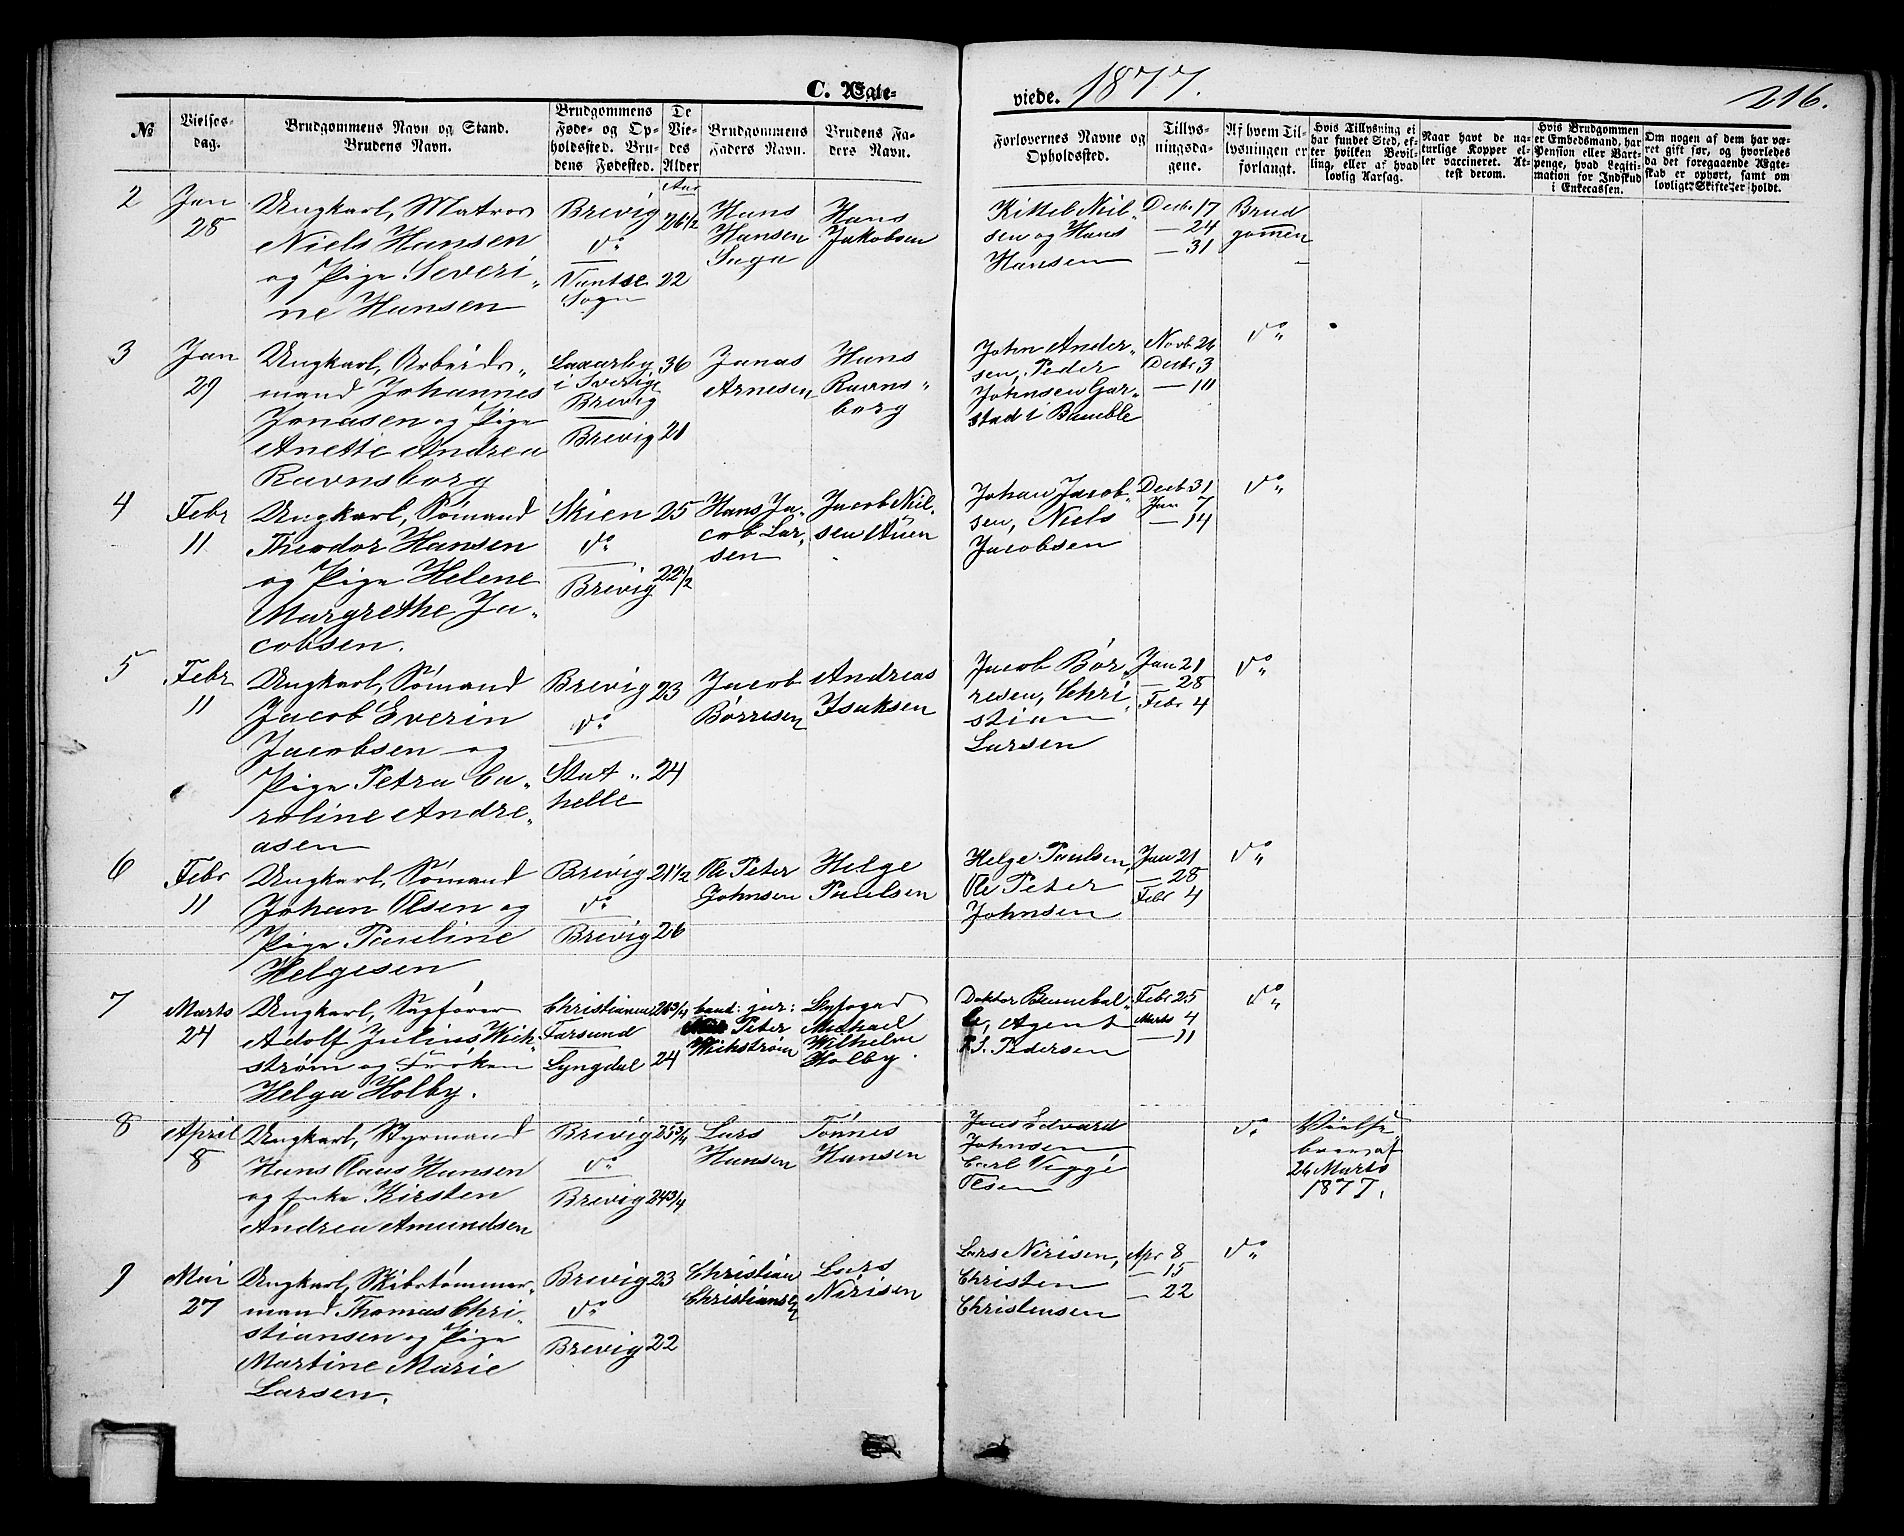 C. Ægte-
viede. 1877.
216.
№
Vielses-
dag.
Brudgommens Navn og Stand.
Brudens Navn.
Brudgommens
Føde- og Op-
holdssted. Bru-
dens Fødested.
De
Vie-
des
Alder
Brudgommens
Faders Navn.
Brudens Fa-
ders Navn.
Forlovernes Navne og
Opholdssted.
Tillys-
ningsda-
gene.
Af hvem Til-
lysningen er
forlangt.
Hvis Tillysning ei
har fundet Sted, ef-
ter hvilken Bevil-
ling, eller af hvad
lovlig Aarsag.
Naar havt de na-
turlige Kopper el-
ler vaccineret. At-
test derom.
Hvis Brudgommen
er Embedsmand, har
Pension eller Vart-
penge, hvad Legiti-
mation for Indskud
i Enkecassen.
Om nogen af dem har væ-
ret gift før, og hvorledes
da det foregaaende Ægte-
skab er ophørt, samt om
lovligt Skifte er holdt.
2
Jan
28
Ungkarl, Matros
Niels Hansen
og Pige Severi-
ne Hansen
Brevig
do
Sogn
Aar
26 1/2
22
Hans
Hansen
Hans
Jakobsen
Kittel Niel-
sen og Hans
Hansen
Decbr 17
— 24
— 31
Brud
gomen
3
Jan
29
Ungkarl, Arbeids-
mand Johannes
Jonasen og Pige
Anette Andrea
Ravnsborg
i Sverige
Brevig
Brevig
36
21
Jonas
Arnesen
Hans
Ravns-
borg
John Ander-
sen, Peder
Johnsen Gar-
stad i Bamble
Novb 26
Decbr 3
— 10
do
4
Febr
11
Ungkarl, Sømand
Theodor Hansen
og Pige Helene
Margrethe Ja-
cobsen.
Skien
do
Brevig
25
22 1/2
Hans Ja-
cob Lar-
sen
Jacob Niel-
sen Auen
Johan Jacob-
sen, Niels
Jacobsen
Decb 31
Jan 7
— 14
do
5
Febr
11
Ungkarl, Sømand
Jacob Everin
Jacobsen og
Pige Petra Ca-
roline Andre-
asen
Brevig
do
Stat-
helle
23
24
Jacob
Børresen
Andreas
Isaksen
Jacob Bør-
resen, Chri-
stian
Larsen
Jan 21
— 28
Febr 4
do
6
Febr
11
Ungkarl, Sømand
Johan Olsen og
Pige Pauline
Helgesen
Brevig
do
Brevig
21 1/2
26
Ole Peter
Johnsen
Helge
Paulsen
Helge Paulsen,
Ole Peter
Johnsen
Jan 21
— 28
Febr 4
do
7
Marts
24
Ungkarl, Sagfører
Adolf Julius Wik-
strøm og Frøken
Helga Holby.
Christiania
Farsund
Lyngdal
24
cand: jur:
Peter
Wickstrøm
Byfoged
Michael
Wilhelm
Holby.
Doktor
Agent
P.S. Pedersen
Febr 25
Marts 4
— 11
do
8
April
8
Ungkarl, Styrmand
Hans Claus Hansen
og Enke Kirsten
Andrea Amundsen
Brevig
do
Brevig
25 3/4
24 3/4
Lars
Hansen
Tønnes
Hansen
Jens Edvard
Johnsen
Carl Viggo
do
26 Marts
1877.
9
Mai
27
Ungkarl, Skibstømmer-
mand Thomas Chri-
stiansen og Pige
Martine Marie
Larsen.
Brevig
do
Brevig
23
22
Christian
Christiansen
Lars
Nirisen
Lars Nirisen,
Christen
Christensen
Apr 8
— 15
— 22
do